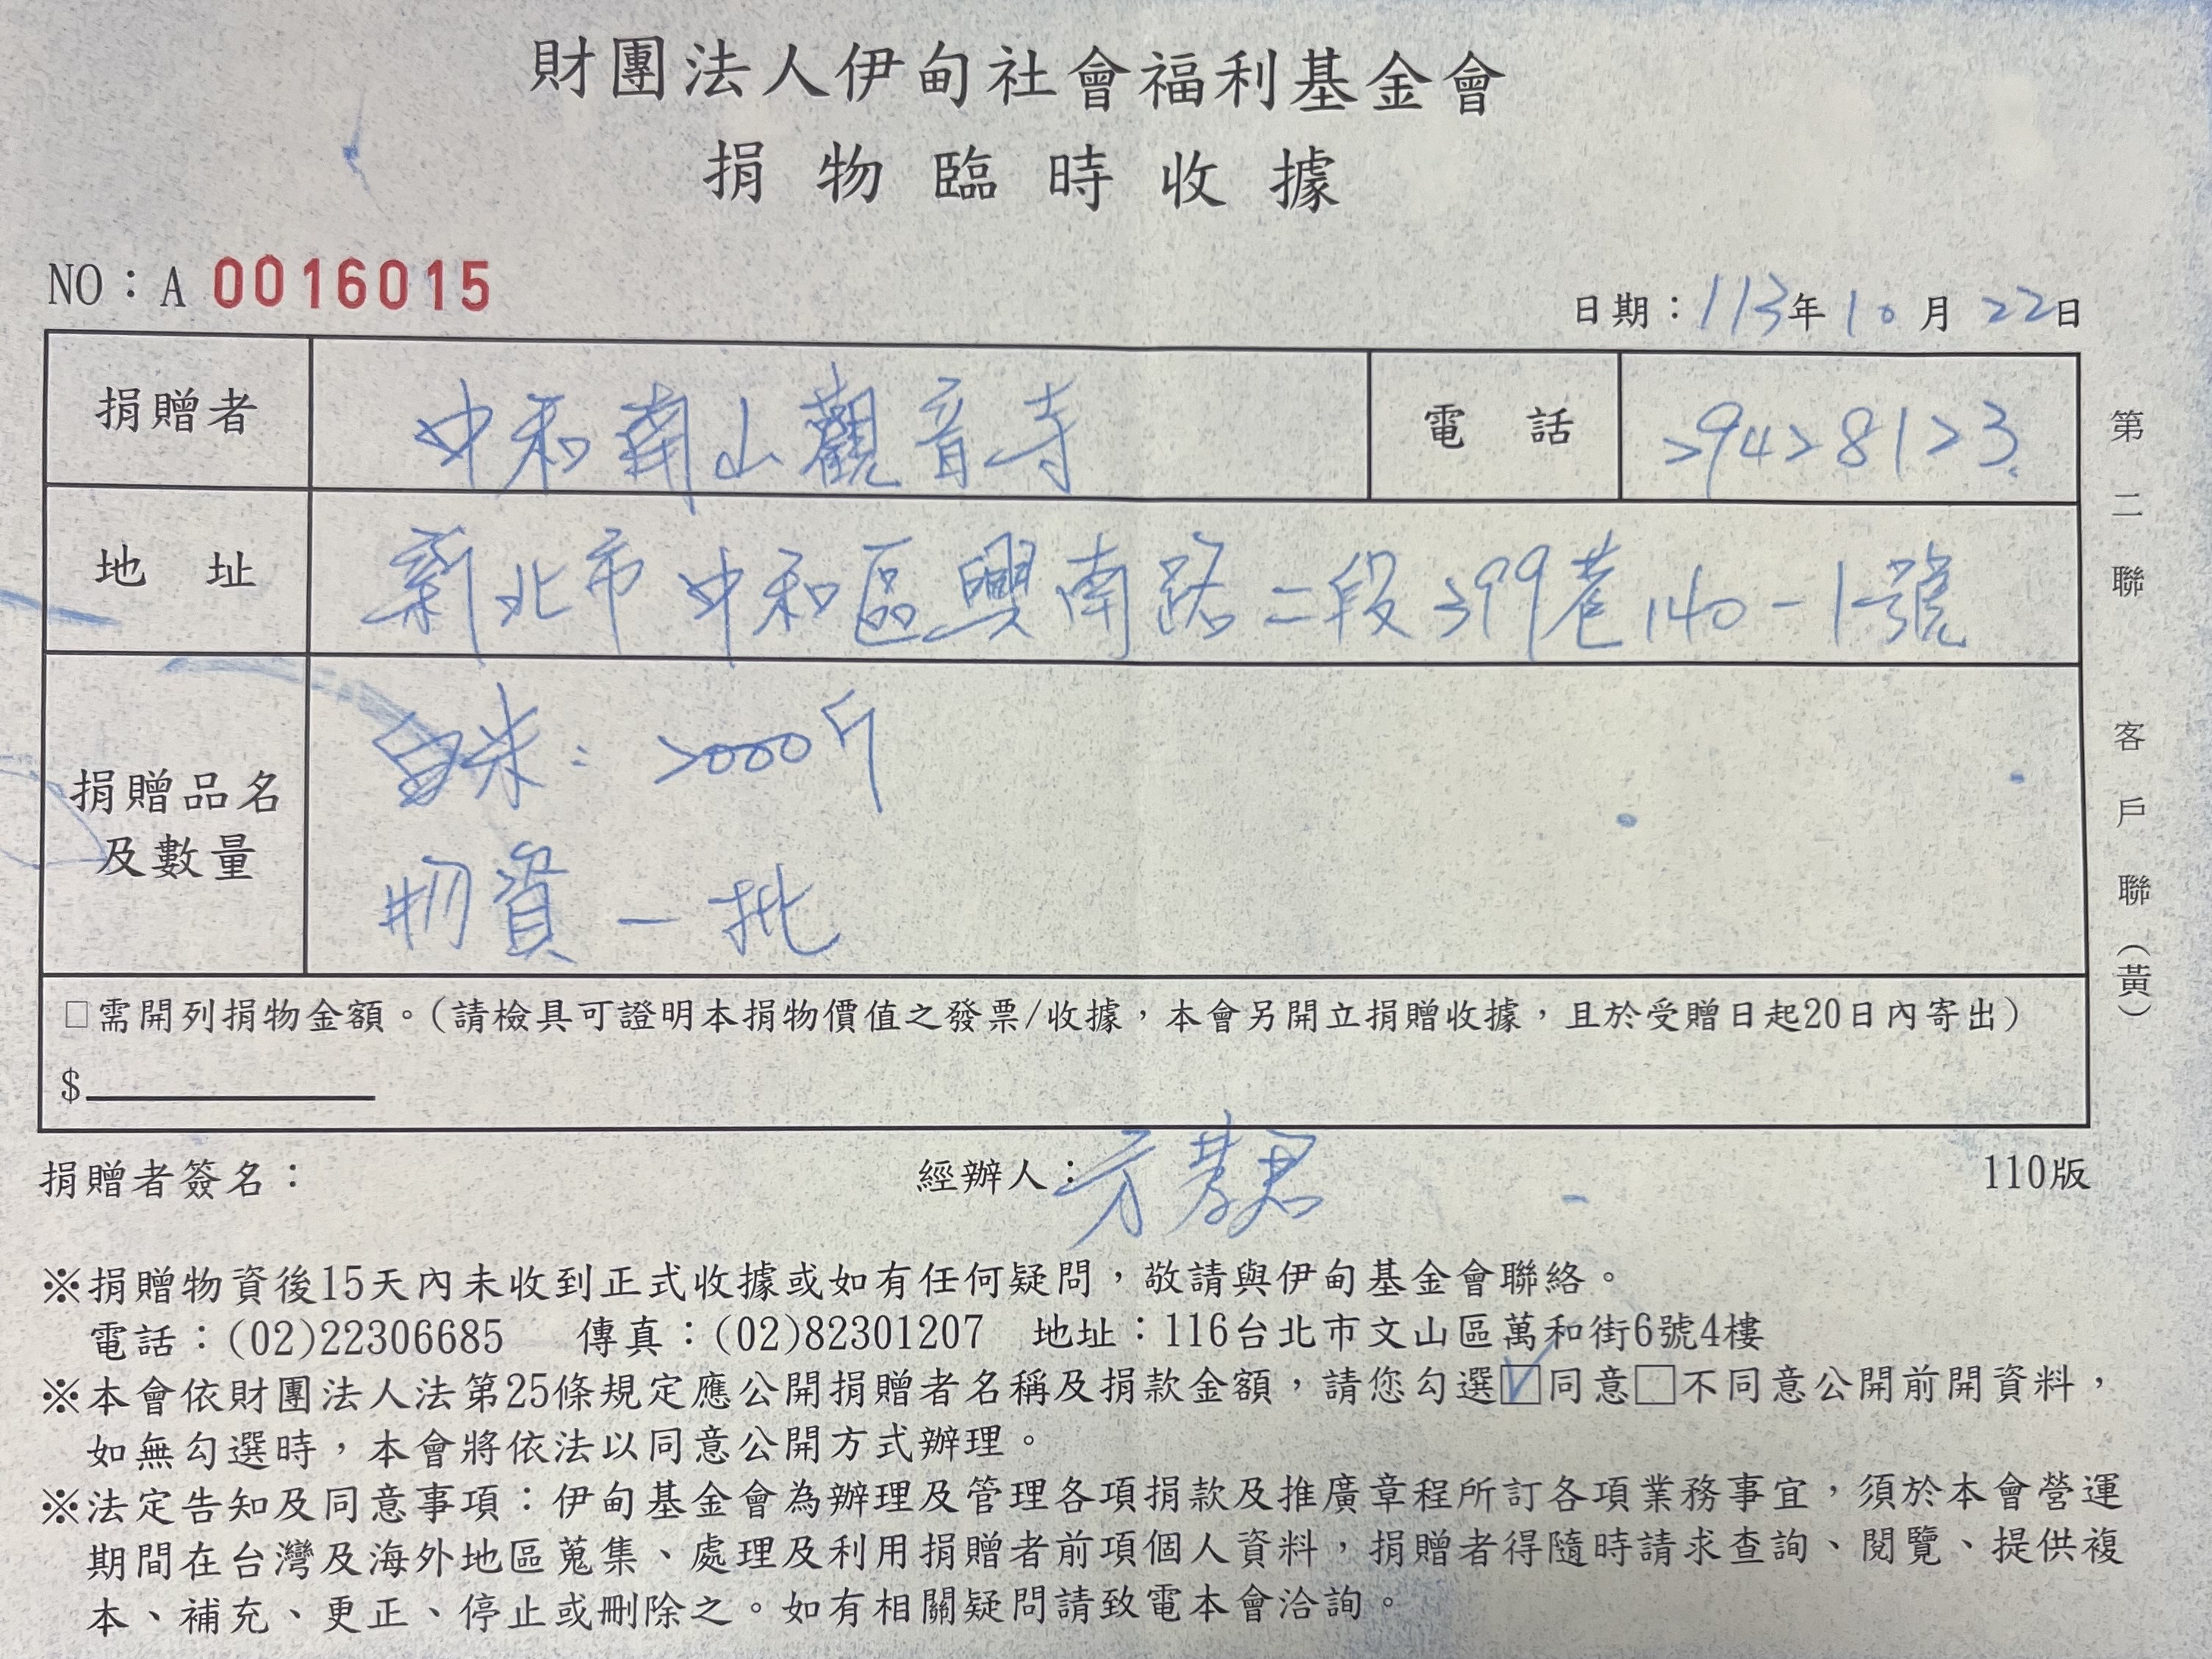 財團法人伊甸社會福利基金會
捐物臨時收據
NO：A 0016015
日期：113年10月22日
捐贈者 中和南山觀音寺 電話 29428123
地址 新北市中和區興南路二段399巷140-1號
捐贈品名及數量
白米：2000斤
物資一批
□需開列捐物金額。(請檢具可證明本捐物價值之發票/收據，本會另開立捐贈收據，且於受贈日起20日內寄出)
$
捐贈者簽名： 經辦人：方 君 110版
第二聯 客戶聯（黃）
※捐贈物資後15天內未收到正式收據或如有任何疑問，敬請與伊甸基金會聯絡。
電話：(02)22306685 傳真：(02)82301207 地址：116台北市文山區萬和街6號4樓
※本會依財團法人法第25條規定應公開捐贈者名稱及捐款金額，請您勾選☑同意□不同意公開前開資料，
如無勾選時，本會將依法以同意公開方式辦理。
※法定告知及同意事項：伊甸基金會為辦理及管理各項捐款及推廣章程所訂各項業務事宜，須於本會營運
期間在台灣及海外地區蒐集、處理及利用捐贈者前項個人資料，捐贈者得隨時請求查詢、閱覽、提供複
本、補充、更正、停止或刪除之。如有相關疑問請致電本會洽詢。